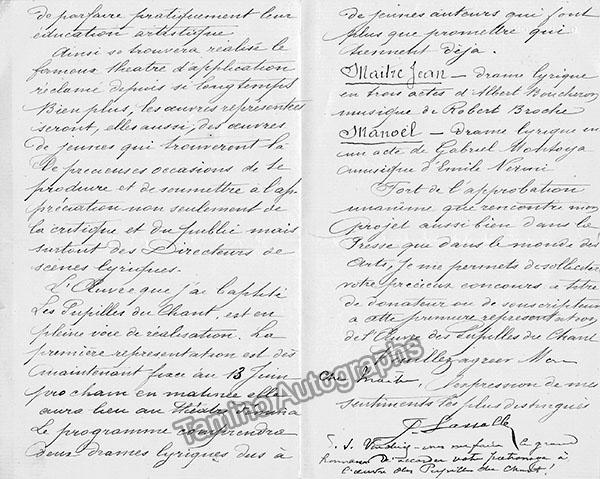 de parfaire pratiquement leur
éducation artistique
Ainsi se trouvera réalisé le
fameux théâtre d'application
réclamé depuis si longtemps
Bien plus, les œuvres représentées
seront, elles aussi, des œuvres
de jeunes qui trouveront là
de précieuses occasions de se
produire et de soumettre à l'ap-
préciation non seulement de
la critique et du public mais
surtout des Directeurs de
scènes lyriques.
L'Œuvre que j'ai baptisé
Les Pupilles du Chant, est en
pleine voie de réalisation. La
première représentation est dès
maintenant fixée au 13 Juin
prochain en matinée elle
aura lieu au théâtre
Le programme comprendra
deux drames lyriques dus à
de jeunes auteurs qui font
plus que promettre qui
tiennent déjà.
Maître Jean — drame lyrique
en trois actes d'Albert Boucheron
musique de Robert Broche
Manoël — Drame lyrique en
un acte de Gabriel Montoya
musique d'Emile Nerini
Fort de l'approbation
unanime que rencontre mon
projet aussi bien dans la
Presse que dans le monde des
Arts, je me permets de solliciter
votre précieux concours à titre
de donateur ou de souscripteur
à cette première représentation
de l'Œuvre des Pupilles du Chant
Veuillez agréer Mon
Cher Maître, l'expression de mes
sentiments les plus distingués
Lassalle
P.S. Voudriez-vous me faire le grand
honneur d'accorder votre patronage à
l'œuvre des Pupilles du Chant!
Tamino Autographs